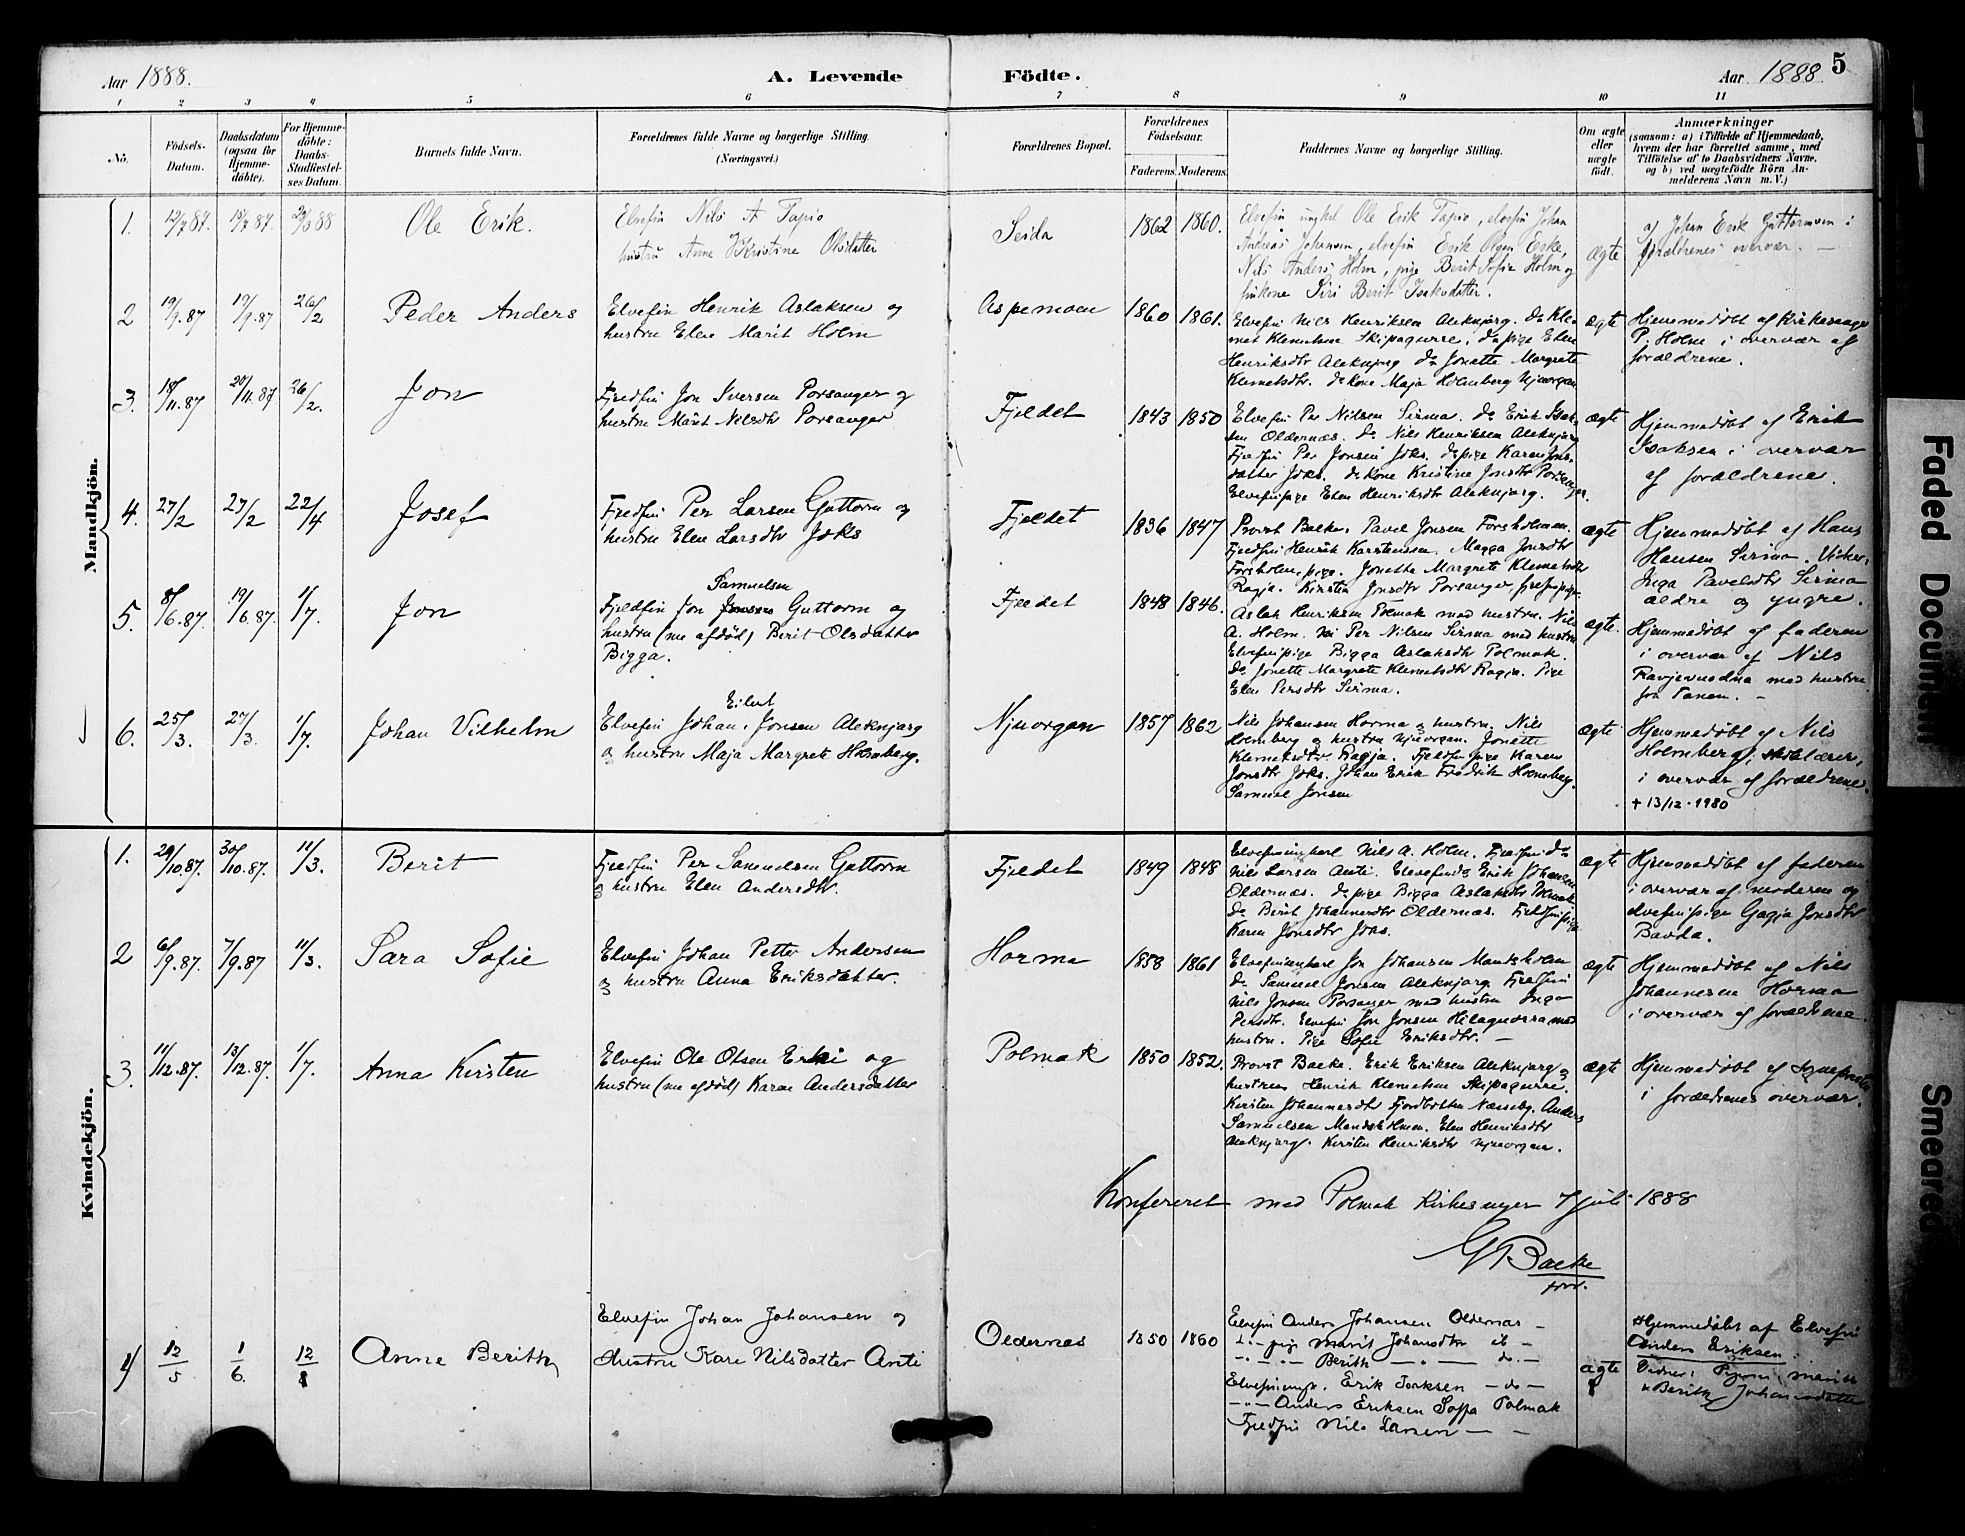 Aar 1888.
A. Levende Födte.
Aar 1888. 5
1 2 3 4 5 6 7 8 9 10 11
No.
Födsels-
Datum.
Daabsdatum
(ogsaa for
Hjemme-
döbte).
For Hjemme-
döbte:
Daabs-
Stadfæstel-
ses Datum.
Barnets fulde Navn.
Forældrenes fulde Navne og borgerlige Stilling.
(Næringsvei.)
Forældrenes Bopæl.
Forældrenes
Födselsaar.
Faderens. Moderens.
Faddernes Navne og borgerlige Stilling.
Om ægte
eller
uægte
födt.
Anmærkninger
(saasom: a) i Tilfælde af Hjemmedaab,
hvem der har forrettet samme, med
Tilföielse af to Daabsvidners Navne,
og b) ved uægtefödte Börn An-
melderens Navn m. V.)
Mandkjön.
1. 12/7 87. 15/7 87. 88 Ole Erik.
Elvefin Nils A Tapio
hustru Anne Kristine Olsdatter
Seida 1862 1860.
Elvefin ungkl Ole Erik Tapio, elvefin Johan
Andreas Johansen, elvefin Erik Olsen Erke,
Nils Anders Holm, pige Berit Sofie Holm og
finkone Siri Berit Isaksdatter.
ægte
a) Johan Erik Guttormsen i
forældrenes overvær. —
2 19/9.87 19/9.87 26/2 Peder Anders
Elvefin Henrik Aslaksen og
hustru Elen Marit Holm
Aspemoen 1860 1861.
Elvefin Nils Henriksen Aleknjarg. do Kle-
met Klemetsen Skipagurre. do pige Elen
Henriksdtr Aleknjarg do Jonette Margrete
Klemetsdtr. do kone Maja Holmberg Njuorgan
ægte
Hjemmedöbt af Kirkesanger
P. Holm i overvær af
forældrene.
3. 18/11.87 20/11.87 26/2. Jon
Fjeldfin Jon Iversen Porsanger og
hustru Marit Nilsdtr Porsanger
Fjeldet 1843 1850
Elvefin Per Nilsen Sirma. do Erik Isak-
sen Oldernæs. do Nils Henriksen Aleknjarg
Fjeldfin Per Jonsen Joks. do pige Karen Jons-
datter Joks. do kone Kristine Jonsdtr Porsanger.
Elvefinpige Elen Henriksdtr Aleknjarg.
ægte
Hjemmedöbt af Erik
Isaksen i overvær
af forældrene.
4. 27/2 27/2 22/4 Josef
Fjeldfin Per Larsen Guttorm og
hustru Elen Larsdtr Joks
Fjeldet 1836 1847
Provst Balke, Pavel Jonsen Forsholmen.
Fjeldfin Henrik Karstensen. Magga Jonsdtr
Forsholm, pige. Jonetta Margrete Klemetsdtr
Ragja. Kirsten Jonsdtr Porsanger
ægte
Hjemmedöbt af Hans
Hansen Sirma. Vidner,
Inga Pavelsdtr Sirma
ældre og yngre.
5. 8/6.87. 19/6.87. 1/7. Jon
Samuelsen
Fjeldfin Jon Jonsen Guttorm og
hustru (nu afdöd) Berit Olsdatter
Bigga.
Fjeldet 1848 1846.
Aslak Henriksen Polmak med hustru. Nils
A. Holm. Per Nilsen Sirma med hustru
Elvefinpige Bigga Aslaksdtr Polmak.
do Jonette Margrete Klemetsdtr Ragja. Pige
Elen Persdtr Sirma.
ægte.
Hjemmedöbt af faderen
i overvær af Nils
Ravjevuodna med hustru
fra Tanen. —
6. 25/3. 27/3. 1/7. Johan Vilhelm
Eilert
Elvefin Johan Jonsen Aleknjarg
og hustru Maja Margrete Holmberg.
Njuorgan 1857 1862
Nils Johansen Horma og hustru. Nils
Holmberg og hustru Njuorgan. Jonette
Klemetsdtr Ragja. Fjeldfinpige Karen
Jonsdtr Joks. Johan Erik Fredrik Holmberg.
Samuel Jonsen
ægte
Hjemmedöbt af Nils
Holmberg, skolelærer,
i overvær af forældrene.
+ 13/12-1980
Kvindekjön.
1. 29/10.87. 30/10.87. 11/3. Berit
Fjeldfin Per Samuelsen Guttorm
og hustru Elen Andersdtr.
Fjeldet 1849 1848
Elvefinungkarl Nils A. Holm. Fjeldfin do
Nils Larsen Anti. Elvefin do Erik Johansen
Oldernæs. do pige Bigga Aslaksdtr Polmak
do Berit Johannesdtr Oldernæs. Fjeldfinpige
Karen Jonsdtr Joks.
ægte
Hjemmedöbt af faderen
i overvær af moderen og
elvefinpige Gagja Jonsdtr
Bavda.
2 6/9.87. 7/9.87 11/3. Sara Sofie
Elvefin Johan Petter Andersen
og hustru Anna Eriksdatter.
Horma 1858 1861
Elvefinungkarl Jon Johansen Mandsholmen
do Samuel Jonsen Aleknjarg. Fjeldfin
Nils Jonsen Porsanger med hustru Inga
Persdtr. Elvefin Jon Jonsen Hilaguorra med
hustru. Pige Sofie Eriksdtr. —
ægte
Hjemmedöbt af Nils
Johannesen Horma
i overvær af forældrene.
3. 11/12.87. 13/12.87. 1/7. Anna Kirsten
Elvefin Ole Olsen Erki og
hustru (nu afdöd) Karen Andersdatter
Polmak 1850 1852.
Provst Balke. Erik Eriksen Aleknjarg og
hustru. Henrik Klemetsen Skipagurre.
Kirsten Johannesdtr Fjordbotten Næsseby. Anders
Samuelsen Mandsholmen. Elen Henriksdtr
Aleknjarg. Kirsten Henriksdtr Njuorgan.
ægte
Hjemmedöbt af sognepresten
i forældrenes overvær.
Konfereret med Polmak Kirkesanger 7 juli 1888
G Balke
4 12/5 1/6. 12/8 Anne Berith
Elvefin Johan Johansen og
Hustru Kare Nilsdatter Anti
Oldernæs 1850 1860
Elvefin Anders Johansen Oldernæs —
d. — pige Marit Johansdtr ib —
— " — " — Berith — " — do. —
Elvefinungk. Erik Isaksen — do —
— " — Anders Eriksen Soffa Polmak
Fjeldfin Nils Larsen — —
ægte
Hjemmedöbt af Elvefin
Anders Eriksen.
Vidner: Pigerne Marith
& Berith Johansdatter
Faded Document
Smeared